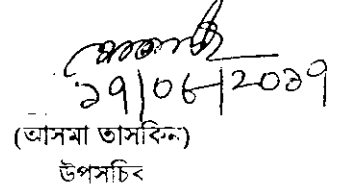 ১৭|০৮|২০১৭
(আসমা তাসকিন)
উপসচিব